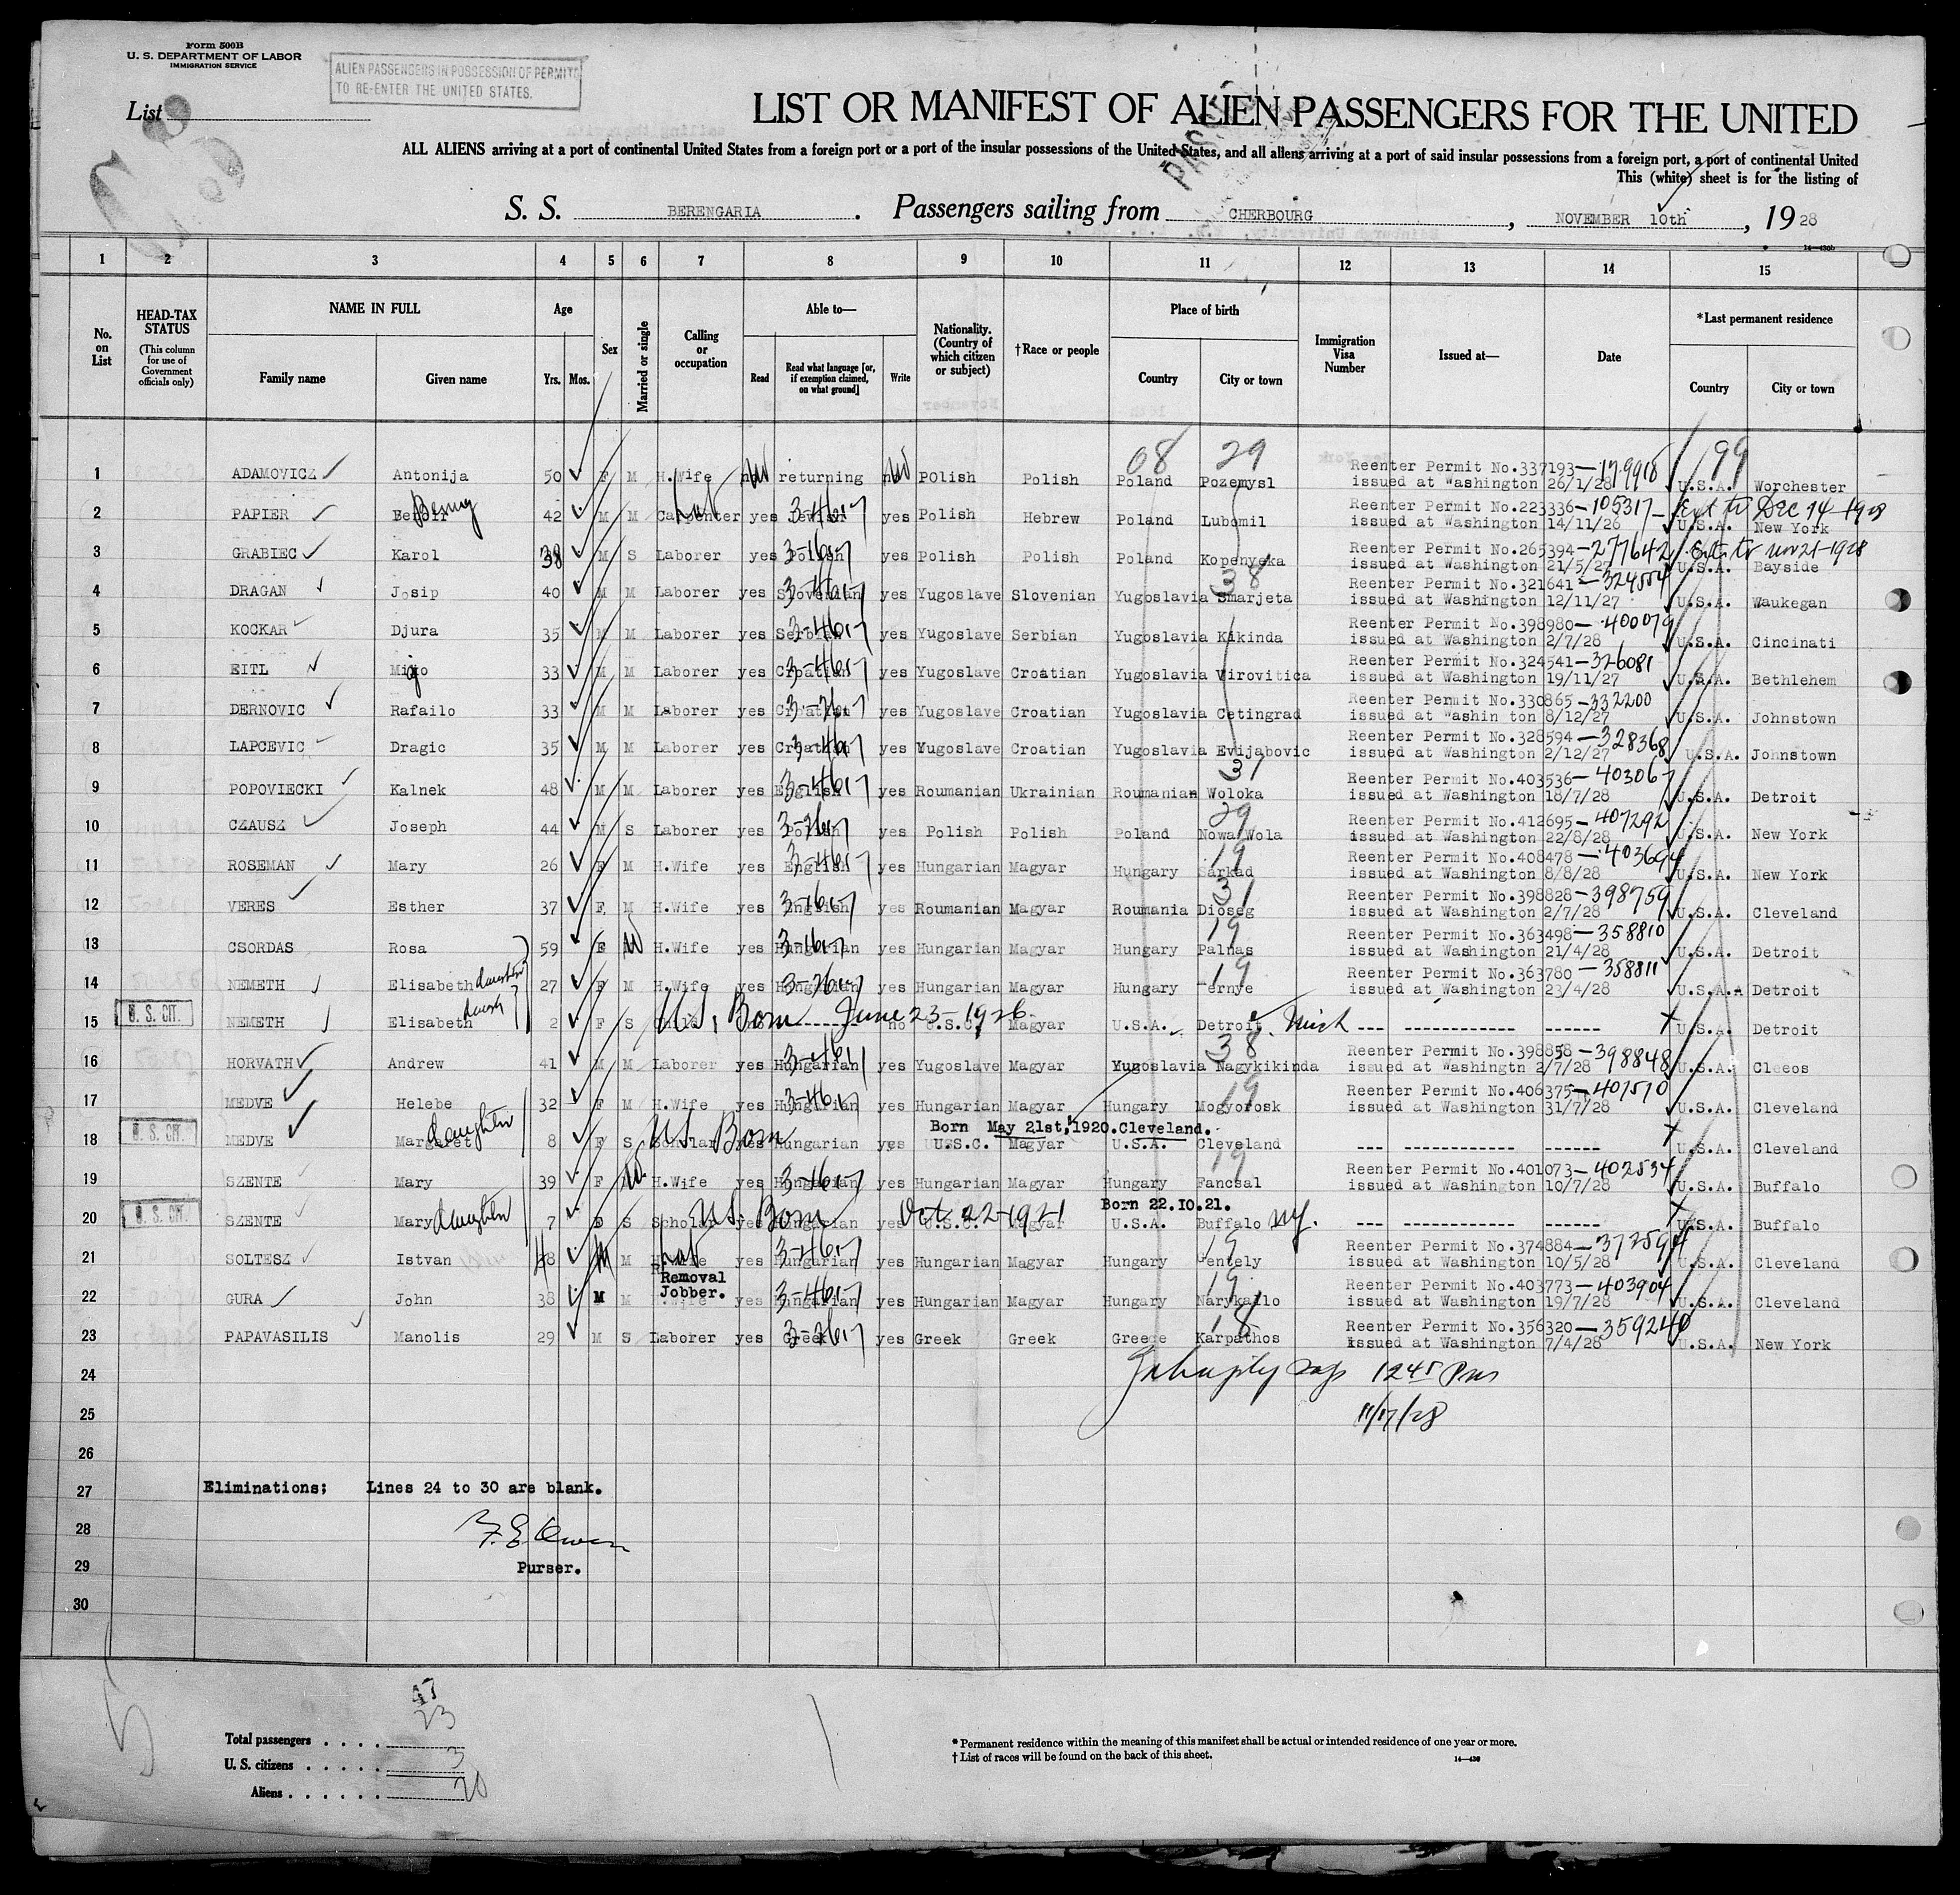 Form 500B
U. S. DEPARTMENT OF LABOR
IMMIGRATION SERVICE
ALIEN PASSENGERS IN POSSESSION OF PERMITS
TO RE-ENTER THE UNITED STATES.
List
LIST OR MANIFEST OF ALIEN PASSENGERS FOR THE UNITED
ALL ALIENS arriving at a port of continental United States from a foreign port or a port of the insular possessions of the United States, and all aliens arriving at a port of said insular possessions from a foreign port, a port of continental United
This (white) sheet is for the listing of
S. S. BERENGARIA . Passengers sailing from CHERBOURG , NOVEMBER 10th , 1928
1 2 3 4 5 6 7 8 9 10 11 12 13 14 15
No. on List
HEAD-TAX STATUS (This column for use of Government officials only)
NAME IN FULL
Family name Given name
Age
Yrs. Mos.
Sex
Married or single
Calling or occupation
Able to—
Read Read what language [or, if exemption claimed, on what ground] Write
Nationality. (Country of which citizen or subject)
†Race or people
Place of birth
Country City or town
Immigration Visa Number
Issued at—
Date
*Last permanent residence
Country City or town
08 29 99
1 ADAMOVICZ Antonija 50 F M H.Wife returning Polish Polish Poland Pozemysl Reenter Permit No.337193 issued at Washington 26/1/28 U.S.A. Worchester
2 PAPIER Benny 42 M M Carpenter yes 3-4617 yes Polish Hebrew Poland Lubomil Reenter Permit No.223336-105317 issued at Washington 14/11/26 Ext to Dec 14-1928 U.S.A. New York
3 GRABIEC Karol 38 M S Laborer yes Polish yes Polish Polish Poland Kopenyeka Reenter Permit No.265394-277642 issued at Washington 21/5/27 Ext to Nov 21-1928 U.S.A. Bayside
4 DRAGAN Josip 40 M M Laborer yes Slovenian yes Yugoslave Slovenian Yugoslavia Smarjeta 38 Reenter Permit No.321641-324554 issued at Washington 12/11/27 U.S.A. Waukegan
5 KOCKAR Djura 35 M M Laborer yes Serbian yes Yugoslave Serbian Yugoslavia Kikinda Reenter Permit No.398980-400079 issued at Washington 2/7/28 U.S.A. Cincinati
6 EITL 33 M M Laborer yes Croatian yes Yugoslave Croatian Yugoslavia Virovitica Reenter Permit No.324541-326081 issued at Washington 19/11/27 U.S.A. Bethlehem
7 DERNOVIC Rafailo 33 M M Laborer yes Croatian yes Yugoslave Croatian Yugoslavia Cetingrad Reenter Permit No.330865-332200 issued at Washin ton 8/12/27 U.S.A. Johnstown
8 LAPCEVIC Dragic 35 M M Laborer yes Croatian yes Yugoslave Croatian Yugoslavia Evijabovic Reenter Permit No.328594-328368 issued at Washington 2/12/27 U.S.A. Johnstown
9 POPOVIECKI Kalnek 48 M M Laborer yes English yes Roumanian Ukrainian Roumanian Woloka 31 Reenter Permit No.403536-403067 issued at Washington 18/7/28 U.S.A. Detroit
10 CZAUSZ Joseph 44 M S Laborer yes Polish yes Polish Polish Poland Nowa Wola 29 Reenter Permit No.412695-407292 issued at Washington 22/8/28 U.S.A. New York
11 ROSEMAN Mary 26 F M H.Wife yes English yes Hungarian Magyar Hungary Sarkad 19 Reenter Permit No.408478-403694 issued at Washington 8/8/28 U.S.A. New York
12 VERES Esther 37 F M H.Wife yes English yes Roumanian Magyar Roumania Dioseg 31 Reenter Permit No.398828-398759 issued at Washington 2/7/28 U.S.A. Cleveland
13 CSORDAS Rosa 59 F W H.Wife yes Hungarian yes Hungarian Magyar Hungary Palnas 19 Reenter Permit No.363498-358810 issued at Washington 21/4/28 U.S.A. Detroit
14 NEMETH Elisabeth daughter 27 F M H.Wife yes Hungarian yes Hungarian Magyar Hungary Ternye 19 Reenter Permit No.363780-358811 issued at Washington 23/4/28 U.S.A. Detroit
15 U. S. CIT. NEMETH Elisabeth 2 F S U.S. Born June 23-1926 no U.S.C. Magyar U.S.A. Detroit, Mich --- ------------ ------ U.S.A. Detroit
16 HORVATH Andrew 41 M M Laborer yes Hungarian yes Yugoslave Magyar Yugoslavia Nagykikinda 38 Reenter Permit No.398858-398848 issued at Washingtn 2/7/28 U.S.A. Cleeos
17 MEDVE Helebe 32 F M H.Wife yes Hungarian yes Hungarian Magyar Hungary Mogyorosk 19 Reenter Permit No.406375-401510 issued at Washington 31/7/28 U.S.A. Cleveland
Born May 21st, 1920. Cleveland.
18 U. S. CIT. MEDVE Margaret daughter 8 F S Scholar U.S. Born yes Hungarian yes U.S.C. Magyar U.S.A. Cleveland --- ------------ ------ U.S.A. Cleveland
19 SZENTE Mary 39 F W. H.Wife yes Hungarian yes Hungarian Magyar Hungary Fancsal 19 Reenter Permit No.401073-402534 issued at Washington 10/7/28 U.S.A. Buffalo
Born 22.10.21.
20 U. S. CIT. SZENTE Mary daughter 7 S Scholar U.S. Born yes Hungarian yes Oct 22-1921 U.S.C. Magyar U.S.A. Buffalo NY. --- ------------ ------ U.S.A. Buffalo
21 SOLTESZ Istvan 48 M M yes Hungarian yes Hungarian Magyar Hungary Gentely 19 Reenter Permit No.374884-372594 issued at Washington 10/5/28 U.S.A. Cleveland
Removal Jobber.
22 GURA John 38 M M yes Hungarian yes Hungarian Magyar Hungary Narykallo 19 Reenter Permit No.403773-403904 issued at Washington 19/7/28 U.S.A. Cleveland
23 PAPAVASILIS Manolis 29 M S Laborer yes Greek yes Greek Greek Greece Karpathos 18 Reenter Permit No.356320-359240 issued at Washington 7/4/28 U.S.A. New York
24 1245 Pm
25 11/17/28
26
27 Eliminations; Lines 24 to 30 are blank.
28
29 Purser.
30
47
23
Total passengers . . . .
U. S. citizens . . . . . 3
Aliens . . . . . . 20
* Permanent residence within the meaning of this manifest shall be actual or intended residence of one year or more.
† List of races will be found on the back of this sheet.
14—430